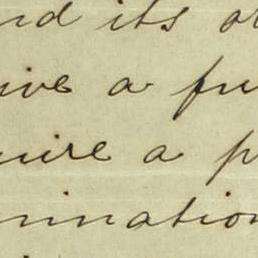 nd its o
ive a fu
uire a p
mination